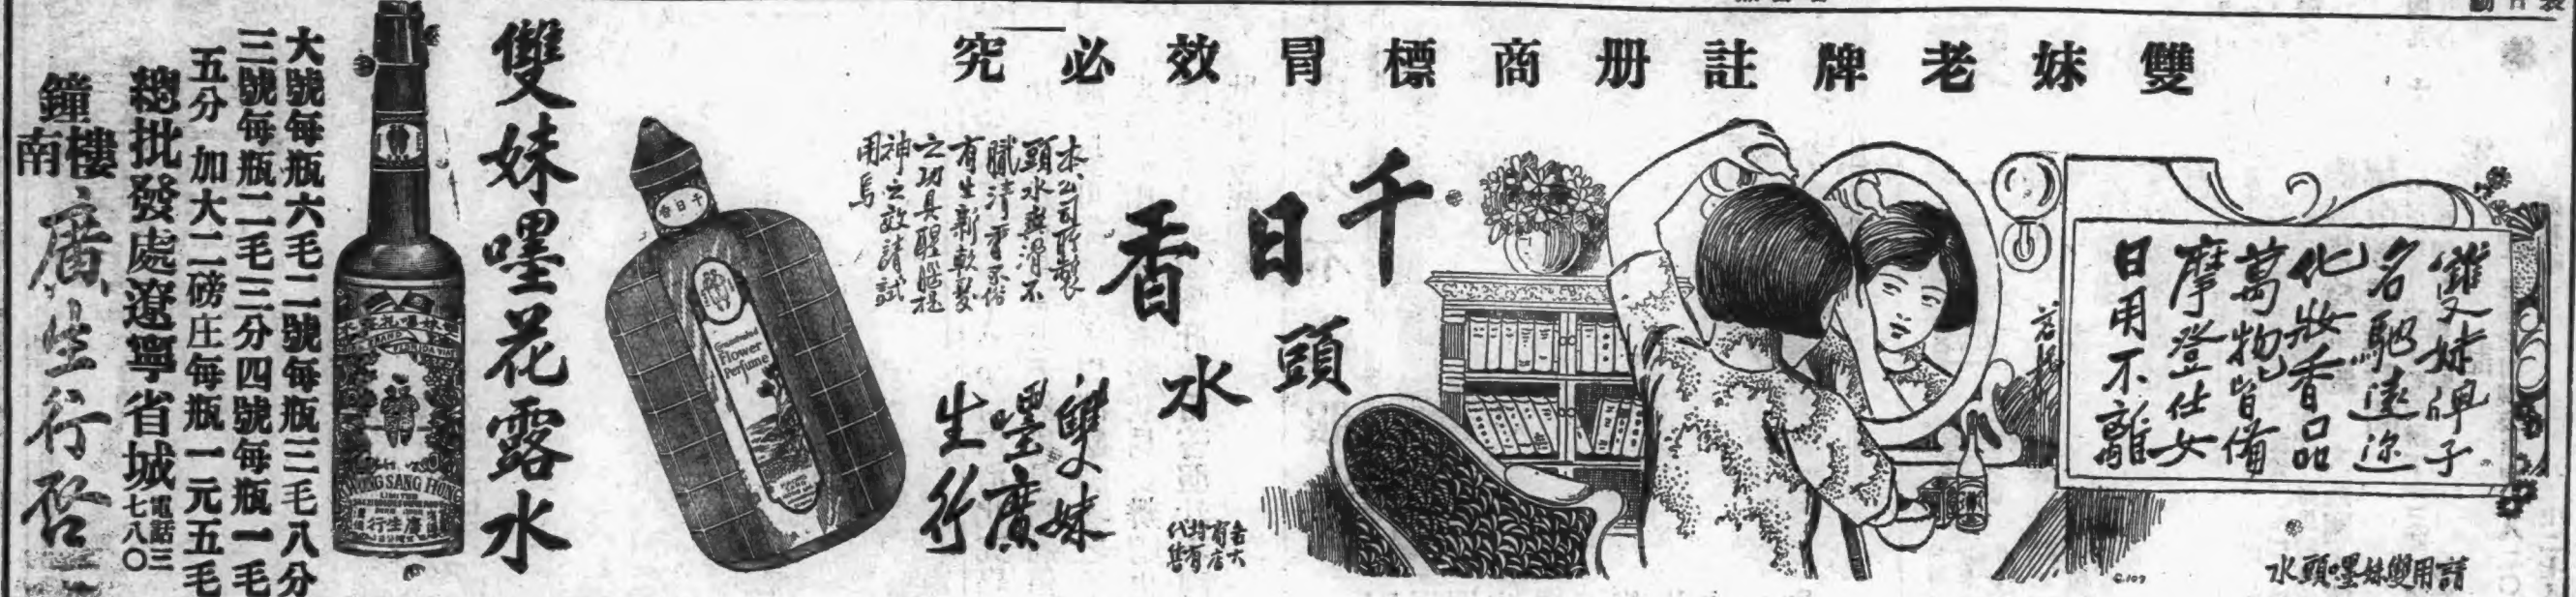 雙妹老牌註册商標冒效必究
雙妹牌子
名馳遠近
化妝香品
萬物皆備
摩登仕女
日用不離
請用雙妹嚜頭水
千日香頭水
各大商店均有代售
本公司所製
頭水與滑不
膩清香不俗
有生新軟髮
之功具醒腦提
神之效請試
用焉
雙妹
嚜廣
生行
千日香
Concentrated
Flower
Perfume
雙妹嚜花露水
FLORIDA WATER
KWONG SANG HONG
LIMITED
廣生行
大號每瓶六毛二號每瓶三毛八分
三號每瓶二毛三分四號每瓶一毛
五分 加大二磅庄每瓶一元五毛
總批發處遼寧省城電話三七八〇
鐘樓南廣生行啓